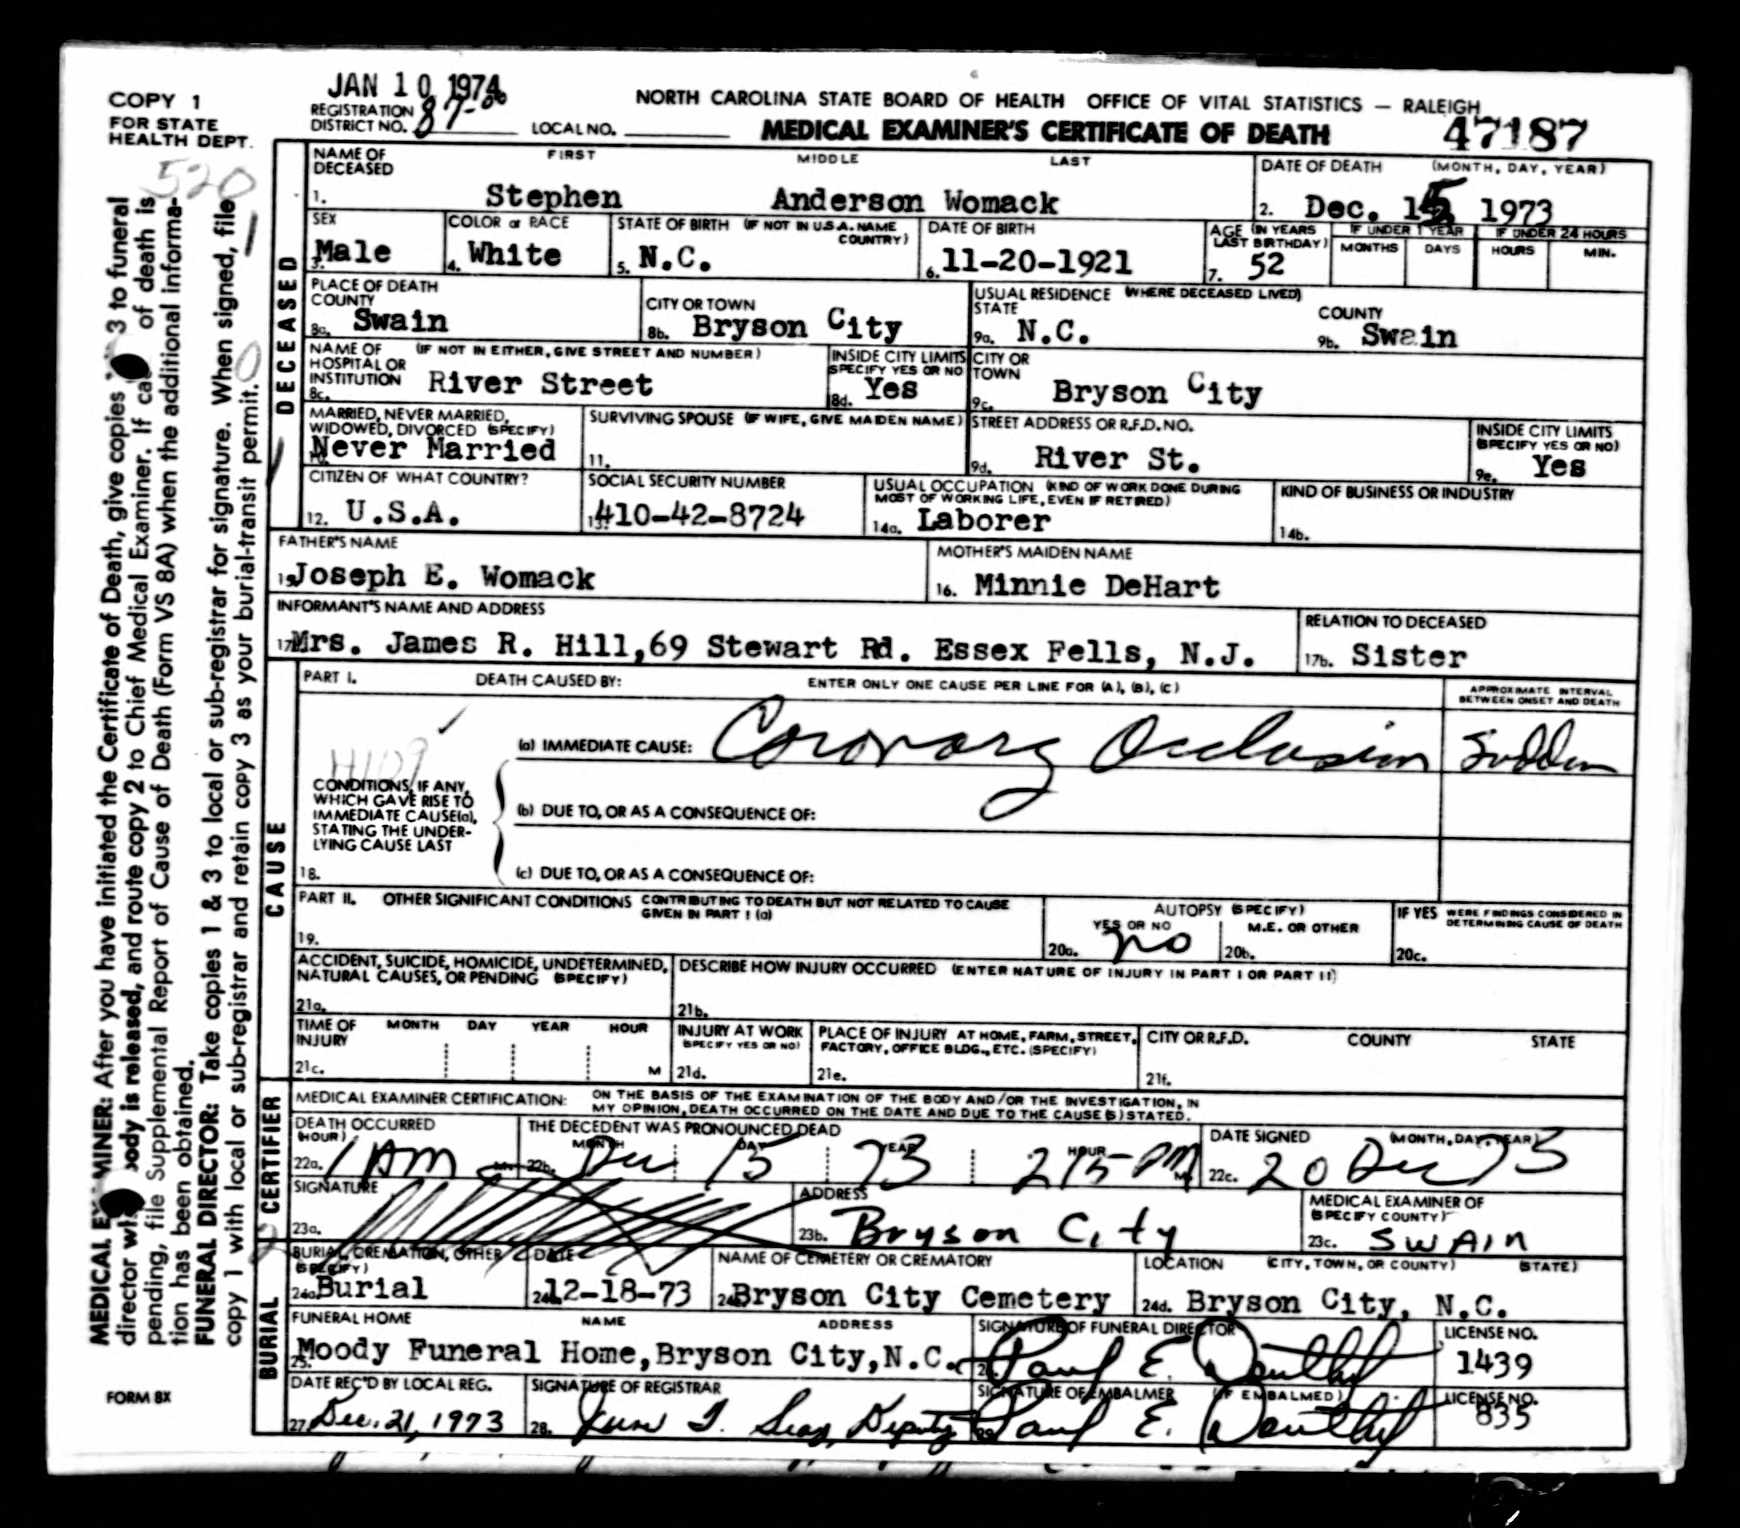 JAN 10 1974
COPY 1
FOR STATE
HEALTH DEPT.
REGISTRATION
DISTRICT NO. 87-00 LOCAL NO.
NORTH CAROLINA STATE BOARD OF HEALTH OFFICE OF VITAL STATISTICS — RALEIGH
MEDICAL EXAMINER'S CERTIFICATE OF DEATH
47187
520
MEDICAL EXAMINER: After you have initiated the Certificate of Death, give copies 3 to funeral
director body is released, and route copy 2 to Chief Medical Examiner. If of death is
pending, file Supplemental Report of Cause of Death (Form VS 8A) when the additional informa-
tion has been obtained.
FUNERAL DIRECTOR: Take copies 1 & 3 to local or sub-registrar for signature. When signed, file
copy 1 with local or sub-registrar and retain copy 3 as your burial-transit permit.
FORM 8X
DECEASED
NAME OF DECEASED FIRST MIDDLE LAST
1. Stephen Anderson Womack
DATE OF DEATH (MONTH, DAY, YEAR)
2. Dec. 15 1973
SEX
3. Male
COLOR or RACE
4. White
STATE OF BIRTH (IF NOT IN U.S.A. NAME COUNTRY)
5. N.C.
DATE OF BIRTH
6. 11-20-1921
AGE (IN YEARS LAST BIRTHDAY)
7. 52
IF UNDER 1 YEAR
MONTHS DAYS
IF UNDER 24 HOURS
HOURS MIN.
PLACE OF DEATH
COUNTY
8a. Swain
CITY OR TOWN
8b. Bryson City
USUAL RESIDENCE (WHERE DECEASED LIVED)
STATE
9a. N.C.
COUNTY
9b. Swain
NAME OF HOSPITAL OR INSTITUTION (IF NOT IN EITHER, GIVE STREET AND NUMBER)
8c. River Street
INSIDE CITY LIMITS
SPECIFY YES OR NO
8d. Yes
CITY OR TOWN
9c. Bryson City
MARRIED, NEVER MARRIED,
WIDOWED, DIVORCED (SPECIFY)
10. Never Married
SURVIVING SPOUSE (IF WIFE, GIVE MAIDEN NAME)
11.
STREET ADDRESS OR R.F.D. NO.
9d. River St.
INSIDE CITY LIMITS
(SPECIFY YES OR NO)
9e. Yes
CITIZEN OF WHAT COUNTRY?
12. U.S.A.
SOCIAL SECURITY NUMBER
13. 410-42-8724
USUAL OCCUPATION (KIND OF WORK DONE DURING
MOST OF WORKING LIFE, EVEN IF RETIRED)
14a. Laborer
KIND OF BUSINESS OR INDUSTRY
14b.
FATHER'S NAME
15. Joseph E. Womack
MOTHER'S MAIDEN NAME
16. Minnie DeHart
INFORMANT'S NAME AND ADDRESS
17a. Mrs. James R. Hill, 69 Stewart Rd. Essex Fells, N.J.
RELATION TO DECEASED
17b. Sister
CAUSE
PART I. DEATH CAUSED BY: ENTER ONLY ONE CAUSE PER LINE FOR (A), (B), (C)
APPROXIMATE INTERVAL
BETWEEN ONSET AND DEATH
(a) IMMEDIATE CAUSE: Coronary Occlusion Sudden
H109
CONDITIONS, IF ANY,
WHICH GAVE RISE TO
IMMEDIATE CAUSE(a),
STATING THE UNDER-
LYING CAUSE LAST
(b) DUE TO, OR AS A CONSEQUENCE OF:
18.
(c) DUE TO, OR AS A CONSEQUENCE OF:
PART II. OTHER SIGNIFICANT CONDITIONS CONTRIBUTING TO DEATH BUT NOT RELATED TO CAUSE
GIVEN IN PART I (a)
19.
AUTOPSY (SPECIFY)
YES OR NO
20a. no
M.E. OR OTHER
20b.
IF YES WERE FINDINGS CONSIDERED IN
DETERMINING CAUSE OF DEATH
20c.
ACCIDENT, SUICIDE, HOMICIDE, UNDETERMINED,
NATURAL CAUSES, OR PENDING (SPECIFY)
21a.
DESCRIBE HOW INJURY OCCURRED (ENTER NATURE OF INJURY IN PART I OR PART II)
21b.
TIME OF INJURY MONTH DAY YEAR HOUR
21c. M
INJURY AT WORK
(SPECIFY YES OR NO)
21d.
PLACE OF INJURY AT HOME, FARM, STREET,
FACTORY, OFFICE BLDG., ETC. (SPECIFY)
21e.
CITY OR R.F.D. COUNTY STATE
21f.
CERTIFIER
MEDICAL EXAMINER CERTIFICATION: ON THE BASIS OF THE EXAMINATION OF THE BODY AND/OR THE INVESTIGATION, IN
MY OPINION, DEATH OCCURRED ON THE DATE AND DUE TO THE CAUSE(S) STATED.
DEATH OCCURRED
(HOUR)
22a. 1 AM M.
THE DECEDENT WAS PRONOUNCED DEAD
MONTH DAY YEAR HOUR
22b. Dec 15 73 215 PM M.
DATE SIGNED (MONTH, DAY, YEAR)
22c. 20 Dec 73
SIGNATURE
23a.
ADDRESS
23b. Bryson City
MEDICAL EXAMINER OF
(SPECIFY COUNTY)
23c. SWAIN
BURIAL
BURIAL, CREMATION, OTHER
(SPECIFY)
24a. Burial
DATE
24b. 12-18-73
NAME OF CEMETERY OR CREMATORY
24c. Bryson City Cemetery
LOCATION (CITY, TOWN, OR COUNTY) (STATE)
24d. Bryson City, N.C.
FUNERAL HOME NAME ADDRESS
25. Moody Funeral Home, Bryson City, N.C.
SIGNATURE OF FUNERAL DIRECTOR
Paul E. Douthit
LICENSE NO.
1439
DATE REC'D BY LOCAL REG.
27. Dec. 21, 1973
SIGNATURE OF REGISTRAR
28. Deputy
SIGNATURE OF EMBALMER (IF EMBALMED)
29. Paul E. Douthit
LICENSE NO.
835